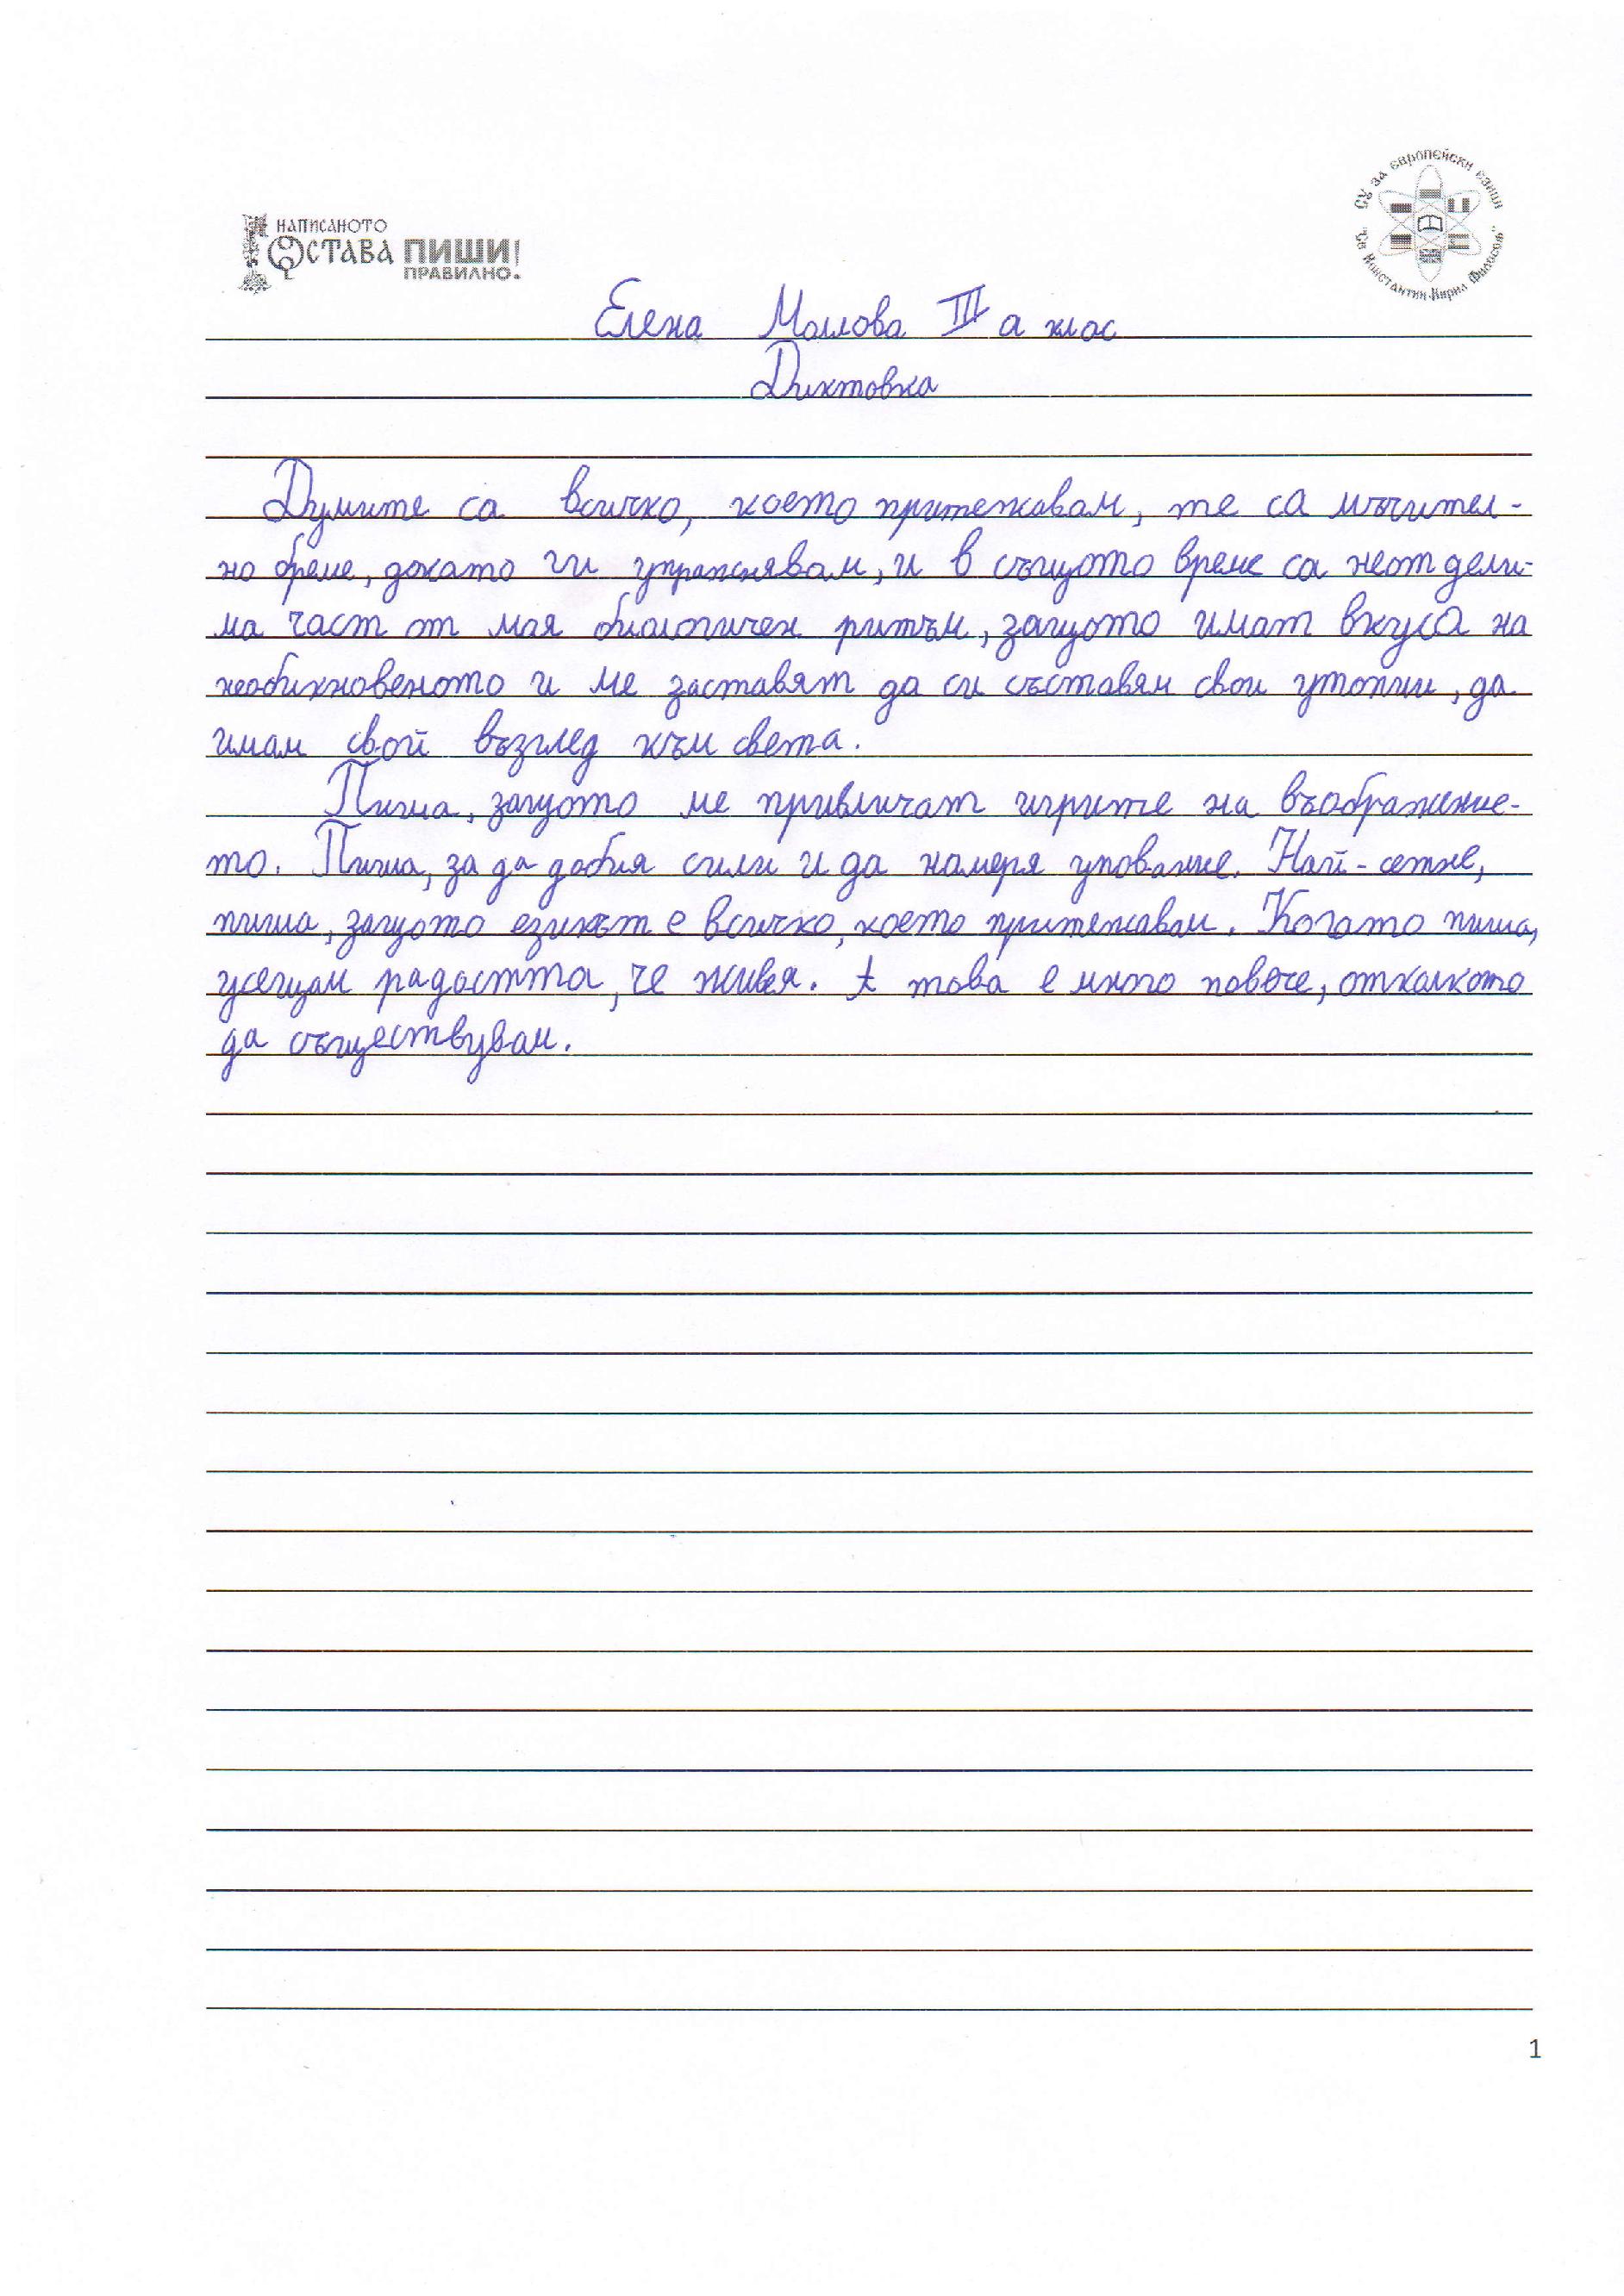 НАПИСАНОТО
ОСТАВА ПИШИ!
ПРАВИЛНО.
СУ за европейски езици
"Св. Константин-Кирил Философ"
Елена Молова III а клас
Диктовка
Думите са всичко, което притежавам, те са мъчител-
но бреме, докато ги упражнявам, и в същото време са неотдели-
ма част от моя биологичен ритъм, защото имат вкуса на
необикновеното и ме заставят да си съставям свои утопии, да
имам свой възглед към света.
Пиша, защото ме привличат игрите на въображение-
то. Пиша, за да добия сили и да намеря упование. Най-сетне,
пиша, защото езикът е всичко, което притежавам. Когато пиша,
усещам радостта, че живея. А това е много повече, отколкото
да съществувам.
1